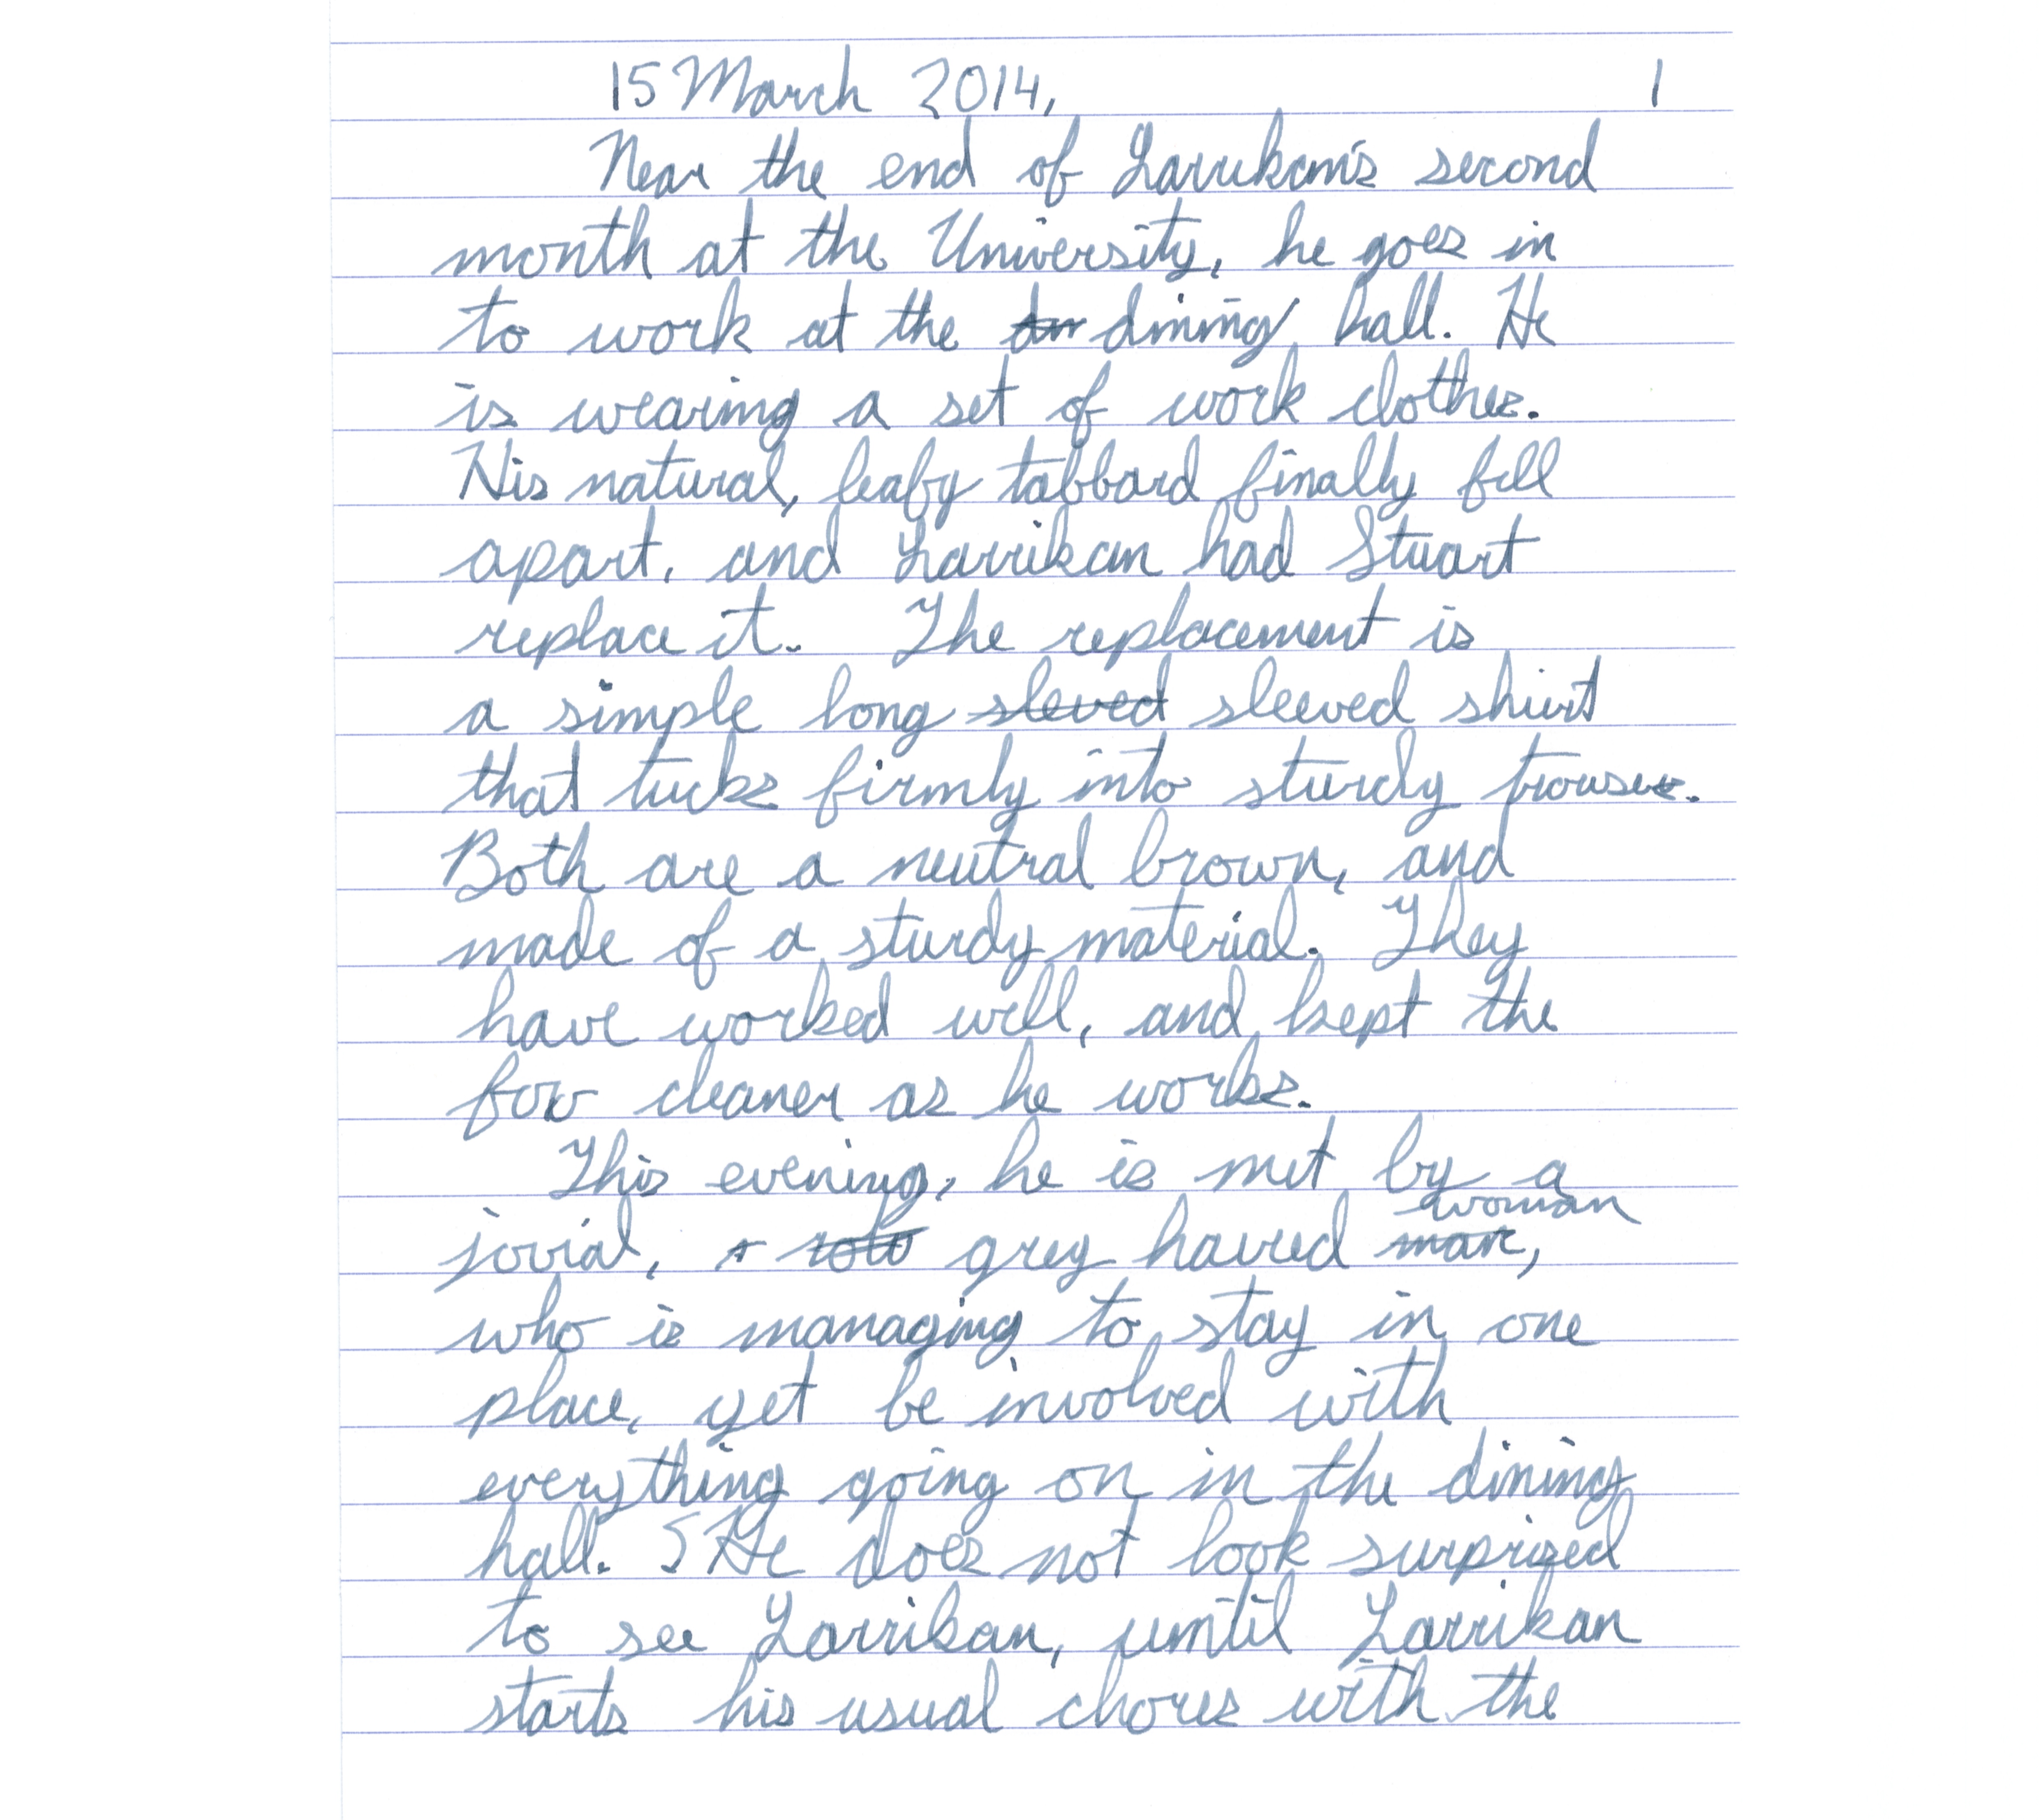 15 March 2014, 1
Near the end of Larrikan's second
month at the University, he goes in
to work at the din dining hall. He
is wearing a set of work clothes.
His natural, leafy tabbard finally fell
apart, and Larrikan had Stuart
replace it. The replacement is
a simple long sleved sleeved shirt
that tucks firmly into sturdy trousers.
Both are a neutral brown, and
made of a sturdy material. They
have worked well, and kept the
fox cleaner as he works.
This evening, he is met by a
woman
jovial, grey haired man,
who is managing to stay in one
place, yet be involved with
everything going on in the dining
hall. SHe does not look surprized
to see Larrikan, until Larrikan
starts his usual chores with the